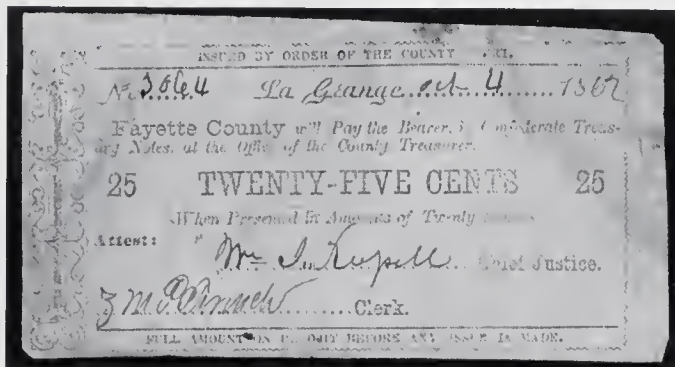 ISSUED BY ORDER OF THE COUNTY
No. 3064 La Grange Oct 4 1862
Fayette County will Pay the Bearer, in Confederate Treas-
ury Notes, at the Office of the County Treasurer.
25 TWENTY-FIVE CENTS 25
When Presented in Amounts of Twenty
Attest: Wm Chief Justice.
Clerk.
FULL AMOUNT ON DEPOSIT BEFORE ANY ISSUE IS MADE.